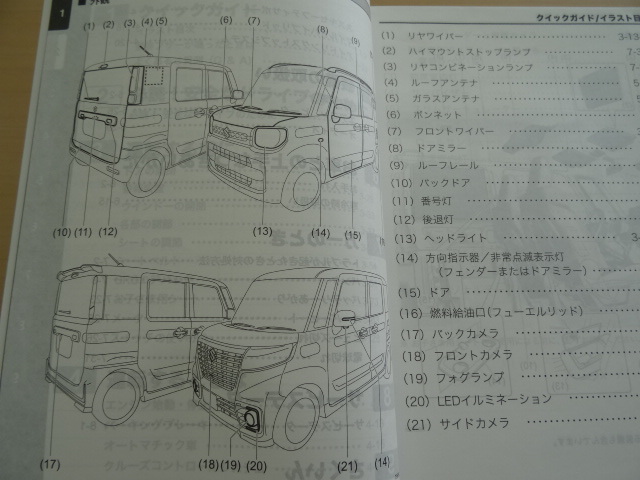 1
■ 外観
(1) (2) (3) (4) (5) (6) (7) (8) (9)
(10) (11) (12) (13) (14) (15)
(17) (18) (19) (20) (21) (14)
クイックガイド/イラスト目
(1) リヤワイパー 3-13
(2) ハイマウントストップランプ 7-
(3) リヤコンビネーションランプ 7-
(4) ルーフアンテナ 5
(5) ガラスアンテナ
(6) ボンネット
(7) フロントワイパー
(8) ドアミラー
(9) ルーフレール
(10) バックドア
(11) 番号灯
(12) 後退灯
(13) ヘッドライト 3-
(14) 方向指示器／非常点滅表示灯
(フェンダーまたはドアミラー)
(15) ドア
(16) 燃料給油口(フューエルリッド)
(17) バックカメラ
(18) フロントカメラ
(19) フォグランプ
(20) LEDイルミネーション
(21) サイドカメラ